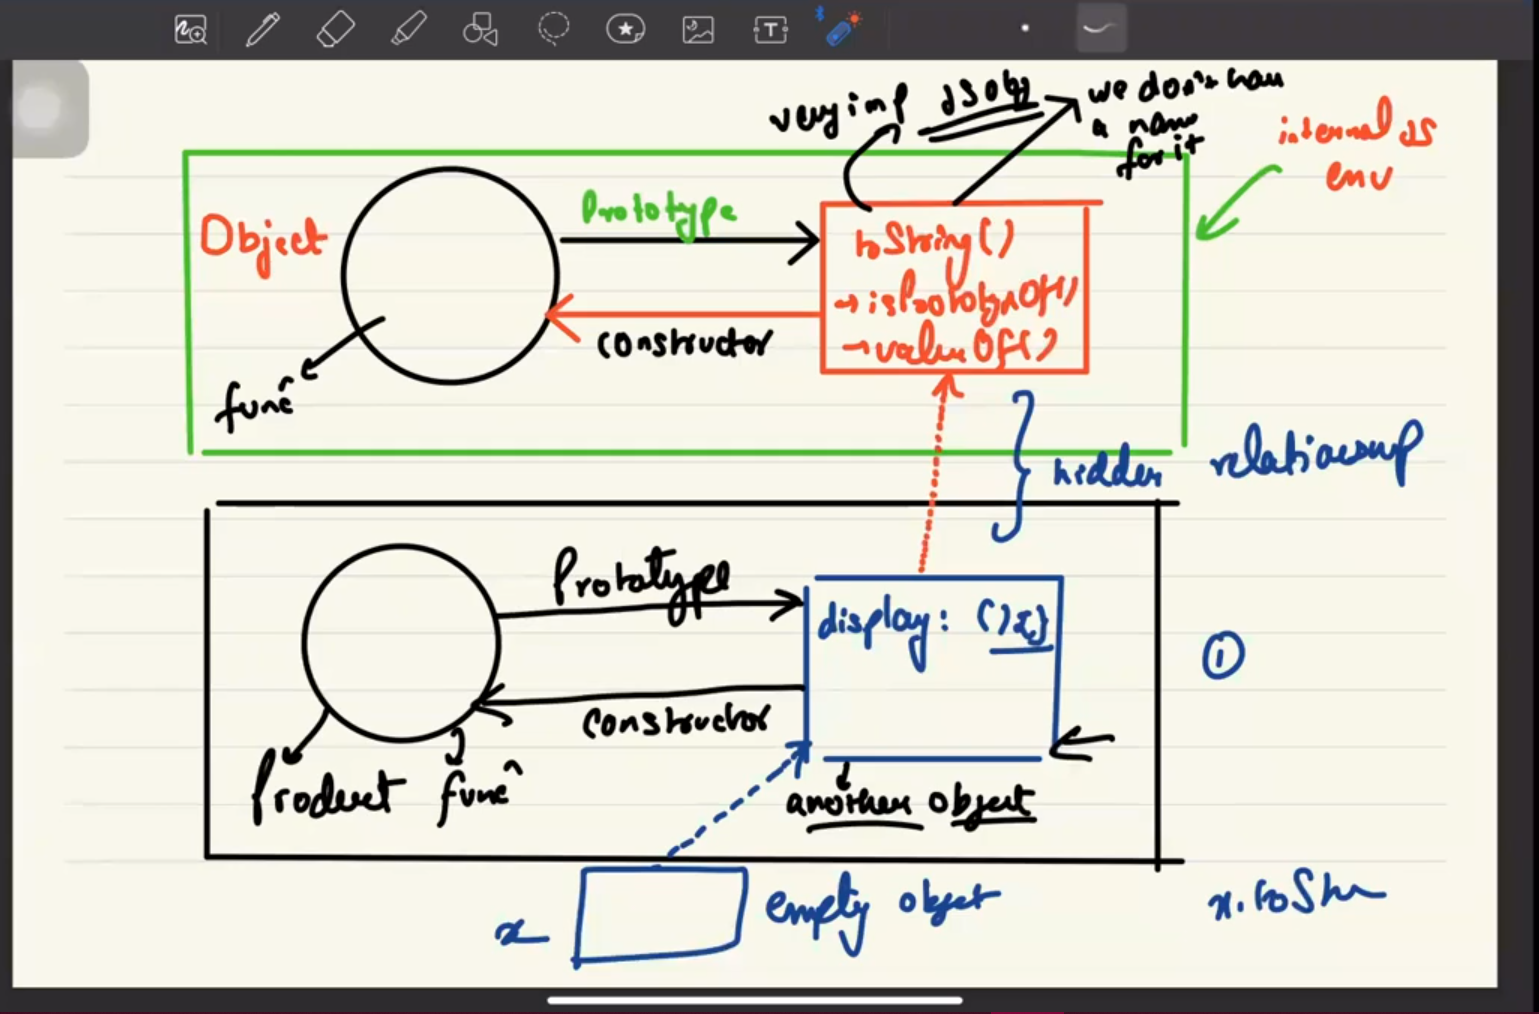 T
very imp JS obj
we don't have
a name
for it
internal JS
env
Object
Prototype
toString()
→ isPrototypeOf()
→ valueOf()
constructor
funcⁿ
hidden relationship
Prototype
display: (){}
①
constructor
Product funcⁿ
another object
x
empty object
x.toStr